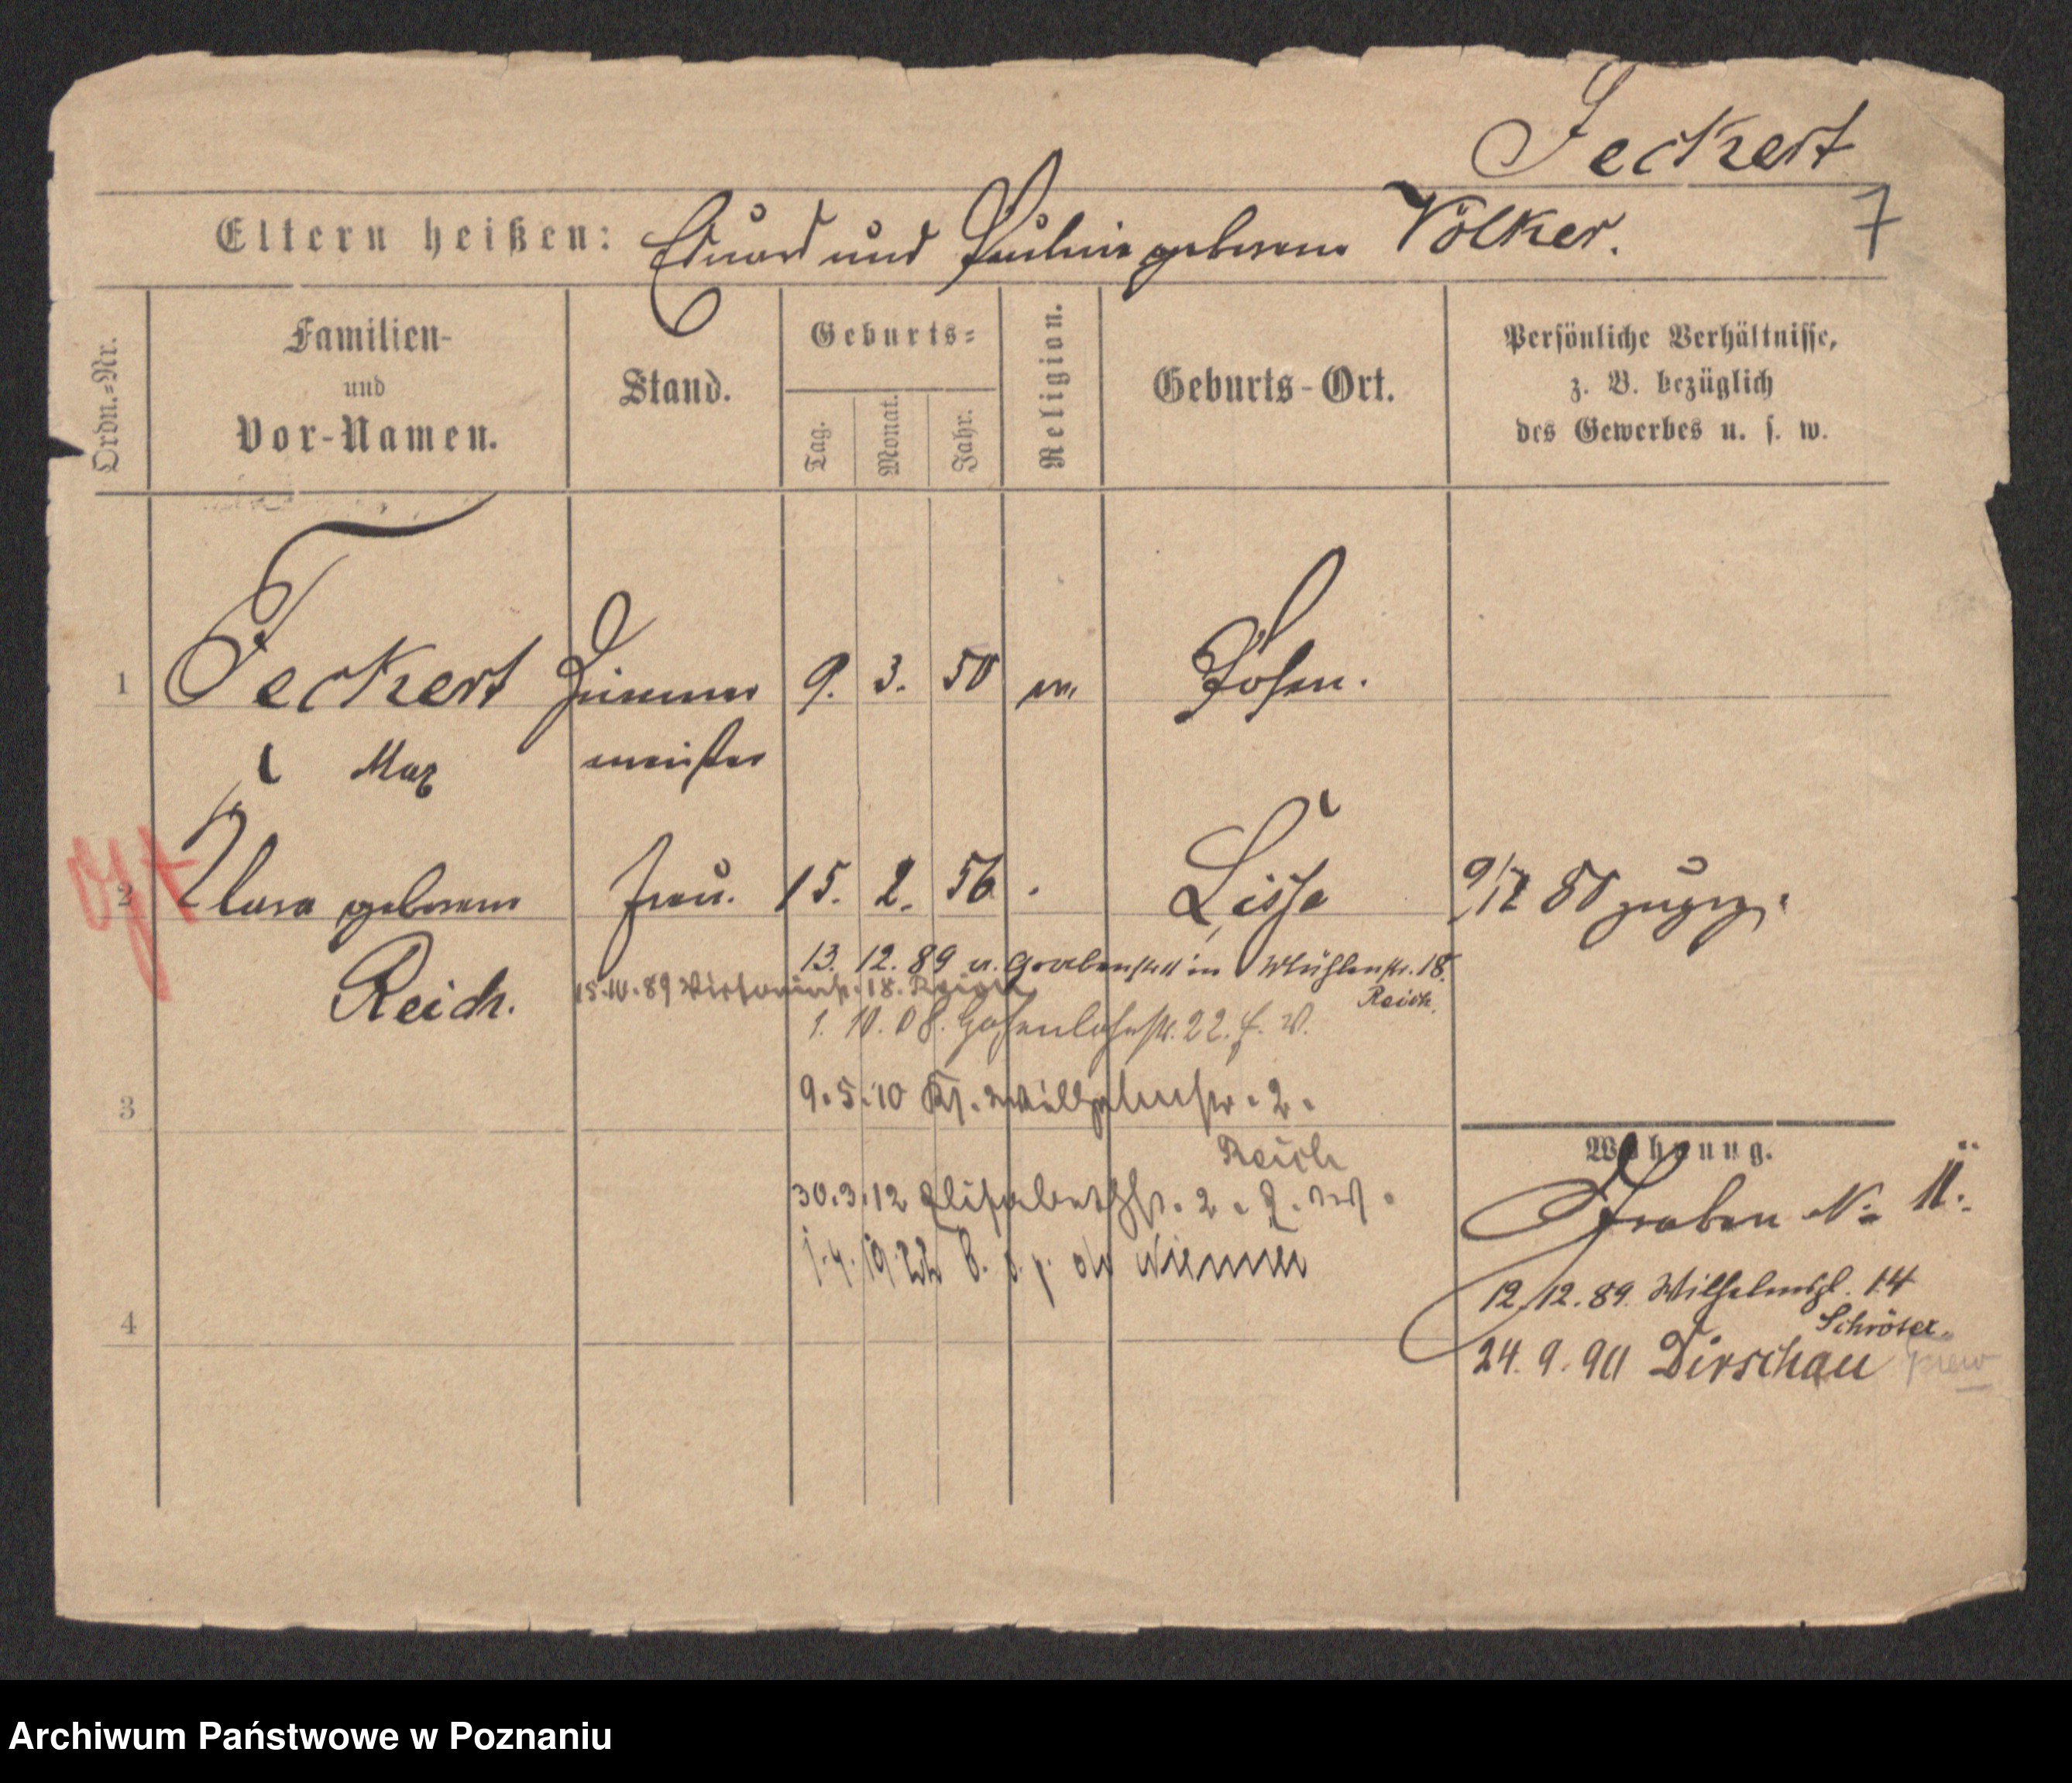 Feckert
Eltern heißen: Eduard und Pauline geborene Völker.
7
Ordn.=Nr.
Familien-
und
Vor-Namen.
Stand.
Geburts=
Tag.
Monat.
Jahr.
Religion.
Geburts-Ort.
Persönliche Verhältnisse,
z. B. bezüglich
des Gewerbes u. s. w.
1 Feckert Zimmer 9. 3. 50 ev. Posen.
Max meister
2 Clara geborene Frau. 15. 2. 56 Lissa 9/12 80 zugez.
Reich.
13. 12. 89 v. Grabenstr 11 in Mühlenstr. 18.
Reich.
15.10.89 Victoriastr. 18. Reich
1. 10. 08. Hohenlohestr. 22. f. W.
3
9.5.10 Ks. Wilhelmstr. 2.
Reich
30.3.12 Elisabethstr. 2.
1.4.1922
4
Wohnung.
Graben No 11.
12.12.89. Wilhelmspl. 14
Schröter.
24. 9. 90 Dirschau
Archiwum Państwowe w Poznaniu